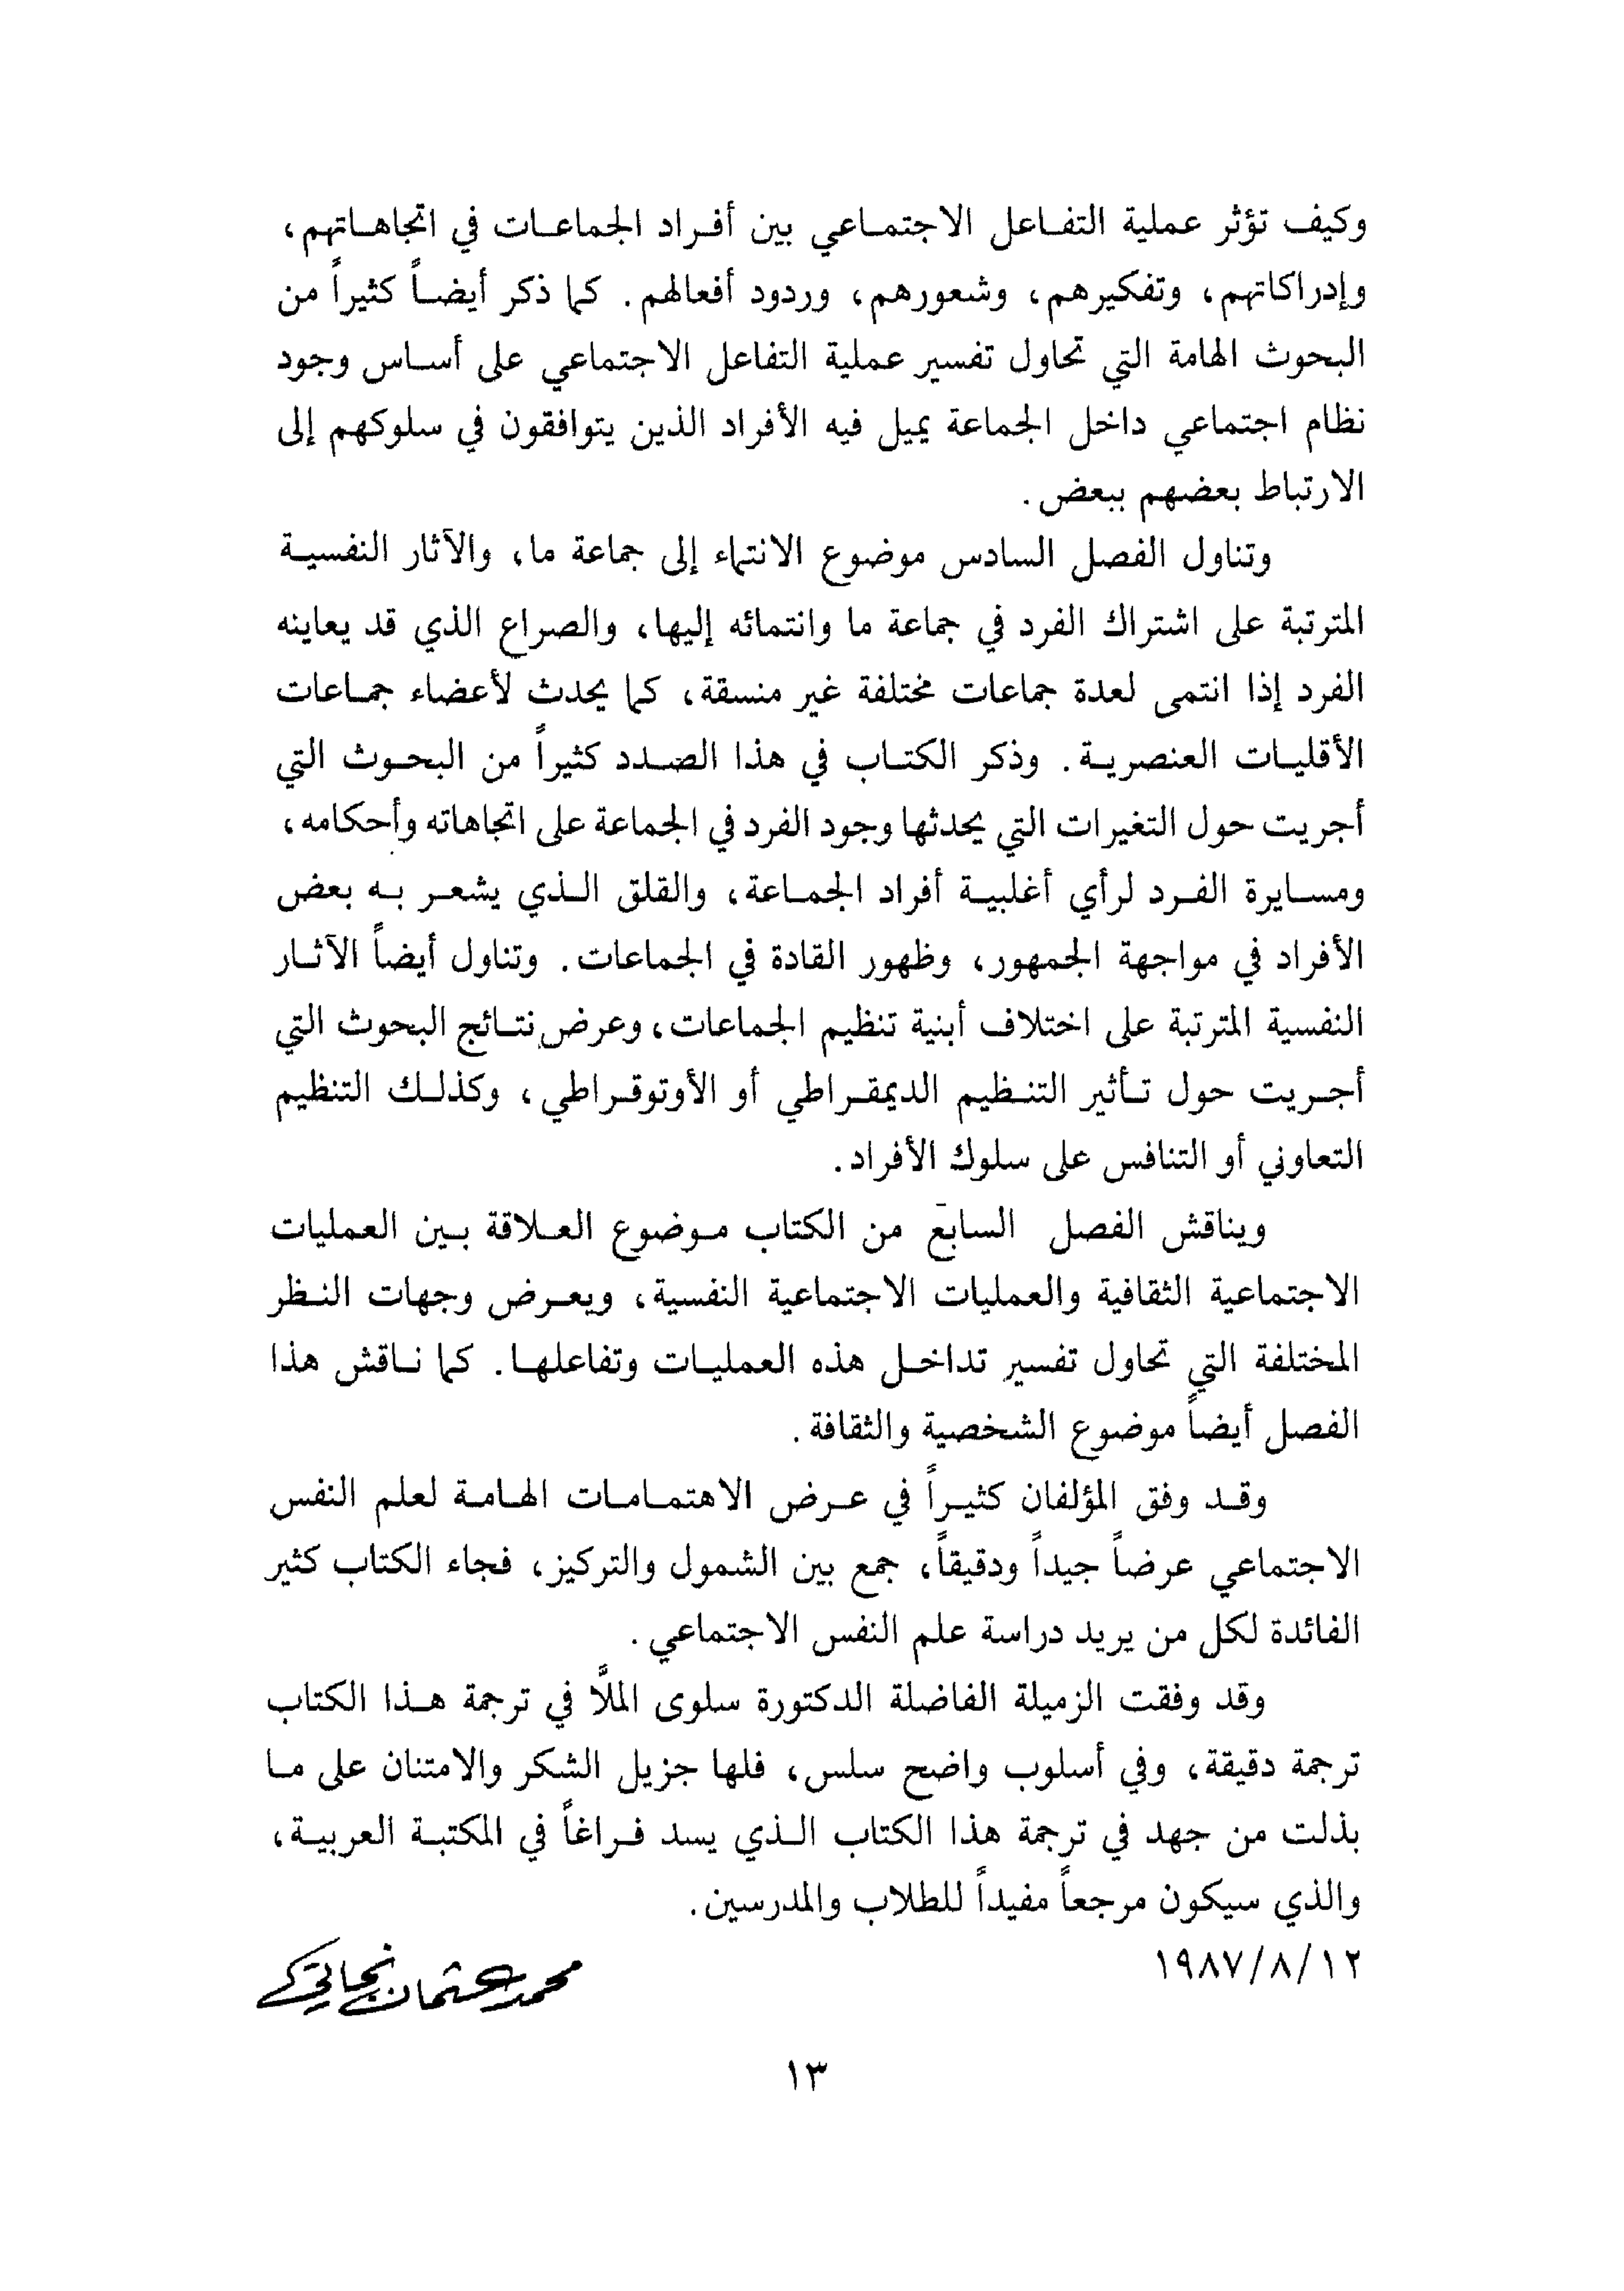 وكيف تؤثر عملية التفاعل الاجتماعي بين أفراد الجماعات في اتجاهاتهم،
وإدراكاتهم، وتفكيرهم، وشعورهم، وردود أفعالهم. كما ذكر أيضاً كثيراً من
البحوث الهامة التي تحاول تفسير عملية التفاعل الاجتماعي على أساس وجود
نظام اجتماعي داخل الجماعة يميل فيه الأفراد الذين يتوافقون في سلوكهم إلى
الارتباط بعضهم ببعض.
وتناول الفصل السادس موضوع الانتماء إلى جماعة ما، والآثار النفسية
المترتبة على اشتراك الفرد في جماعة ما وانتمائه إليها، والصراع الذي قد يعاينه
الفرد إذا انتمى لعدة جماعات مختلفة غير منسقة، كما يحدث لأعضاء جماعات
الأقليات العنصرية. وذكر الكتاب في هذا الصدد كثيراً من البحوث التي
أجريت حول التغيرات التي يحدثها وجود الفرد في الجماعة على اتجاهاته وأحكامه،
ومسايرة الفرد لرأي أغلبية أفراد الجماعة، والقلق الذي يشعر به بعض
الأفراد في مواجهة الجمهور، وظهور القادة في الجماعات. وتناول أيضاً الآثار
النفسية المترتبة على اختلاف أبنية تنظيم الجماعات، وعرض نتائج البحوث التي
أجريت حول تأثير التنظيم الديمقراطي أو الأوتوقراطي، وكذلك التنظيم
التعاوني أو التنافس على سلوك الأفراد.
ويناقش الفصل السابع من الكتاب موضوع العلاقة بين العمليات
الاجتماعية الثقافية والعمليات الاجتماعية النفسية، ويعرض وجهات النظر
المختلفة التي تحاول تفسير تداخل هذه العمليات وتفاعلها. كما ناقش هذا
الفصل أيضاً موضوع الشخصية والثقافة.
وقد وفق المؤلفان كثيراً في عرض الاهتمامات الهامة لعلم النفس
الاجتماعي عرضاً جيداً ودقيقاً، جمع بين الشمول والتركيز، فجاء الكتاب كثير
الفائدة لكل من يريد دراسة علم النفس الاجتماعي.
وقد وفقت الزميلة الفاضلة الدكتورة سلوى الملَّا في ترجمة هذا الكتاب
ترجمة دقيقة، وفي أسلوب واضح سلس، فلها جزيل الشكر والامتنان على ما
بذلت من جهد في ترجمة هذا الكتاب الذي يسد فراغاً في المكتبة العربية،
والذي سيكون مرجعاً مفيداً للطلاب والمدرسين.
١٩٨٧/٨/١٢
محمد عثمان نجاتي
١٣